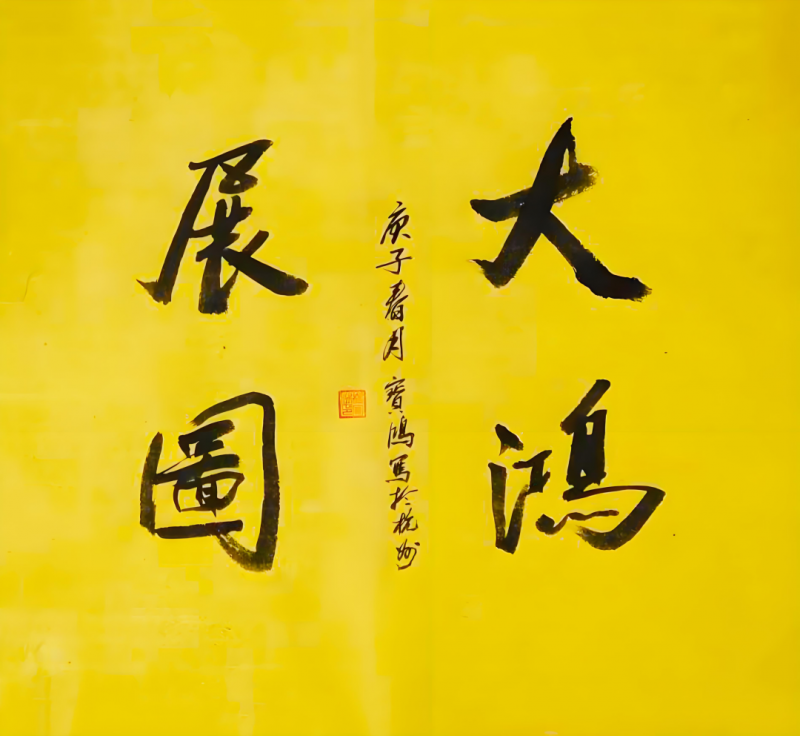 大鴻
展圖
庚子春月寶鴻写於杭州